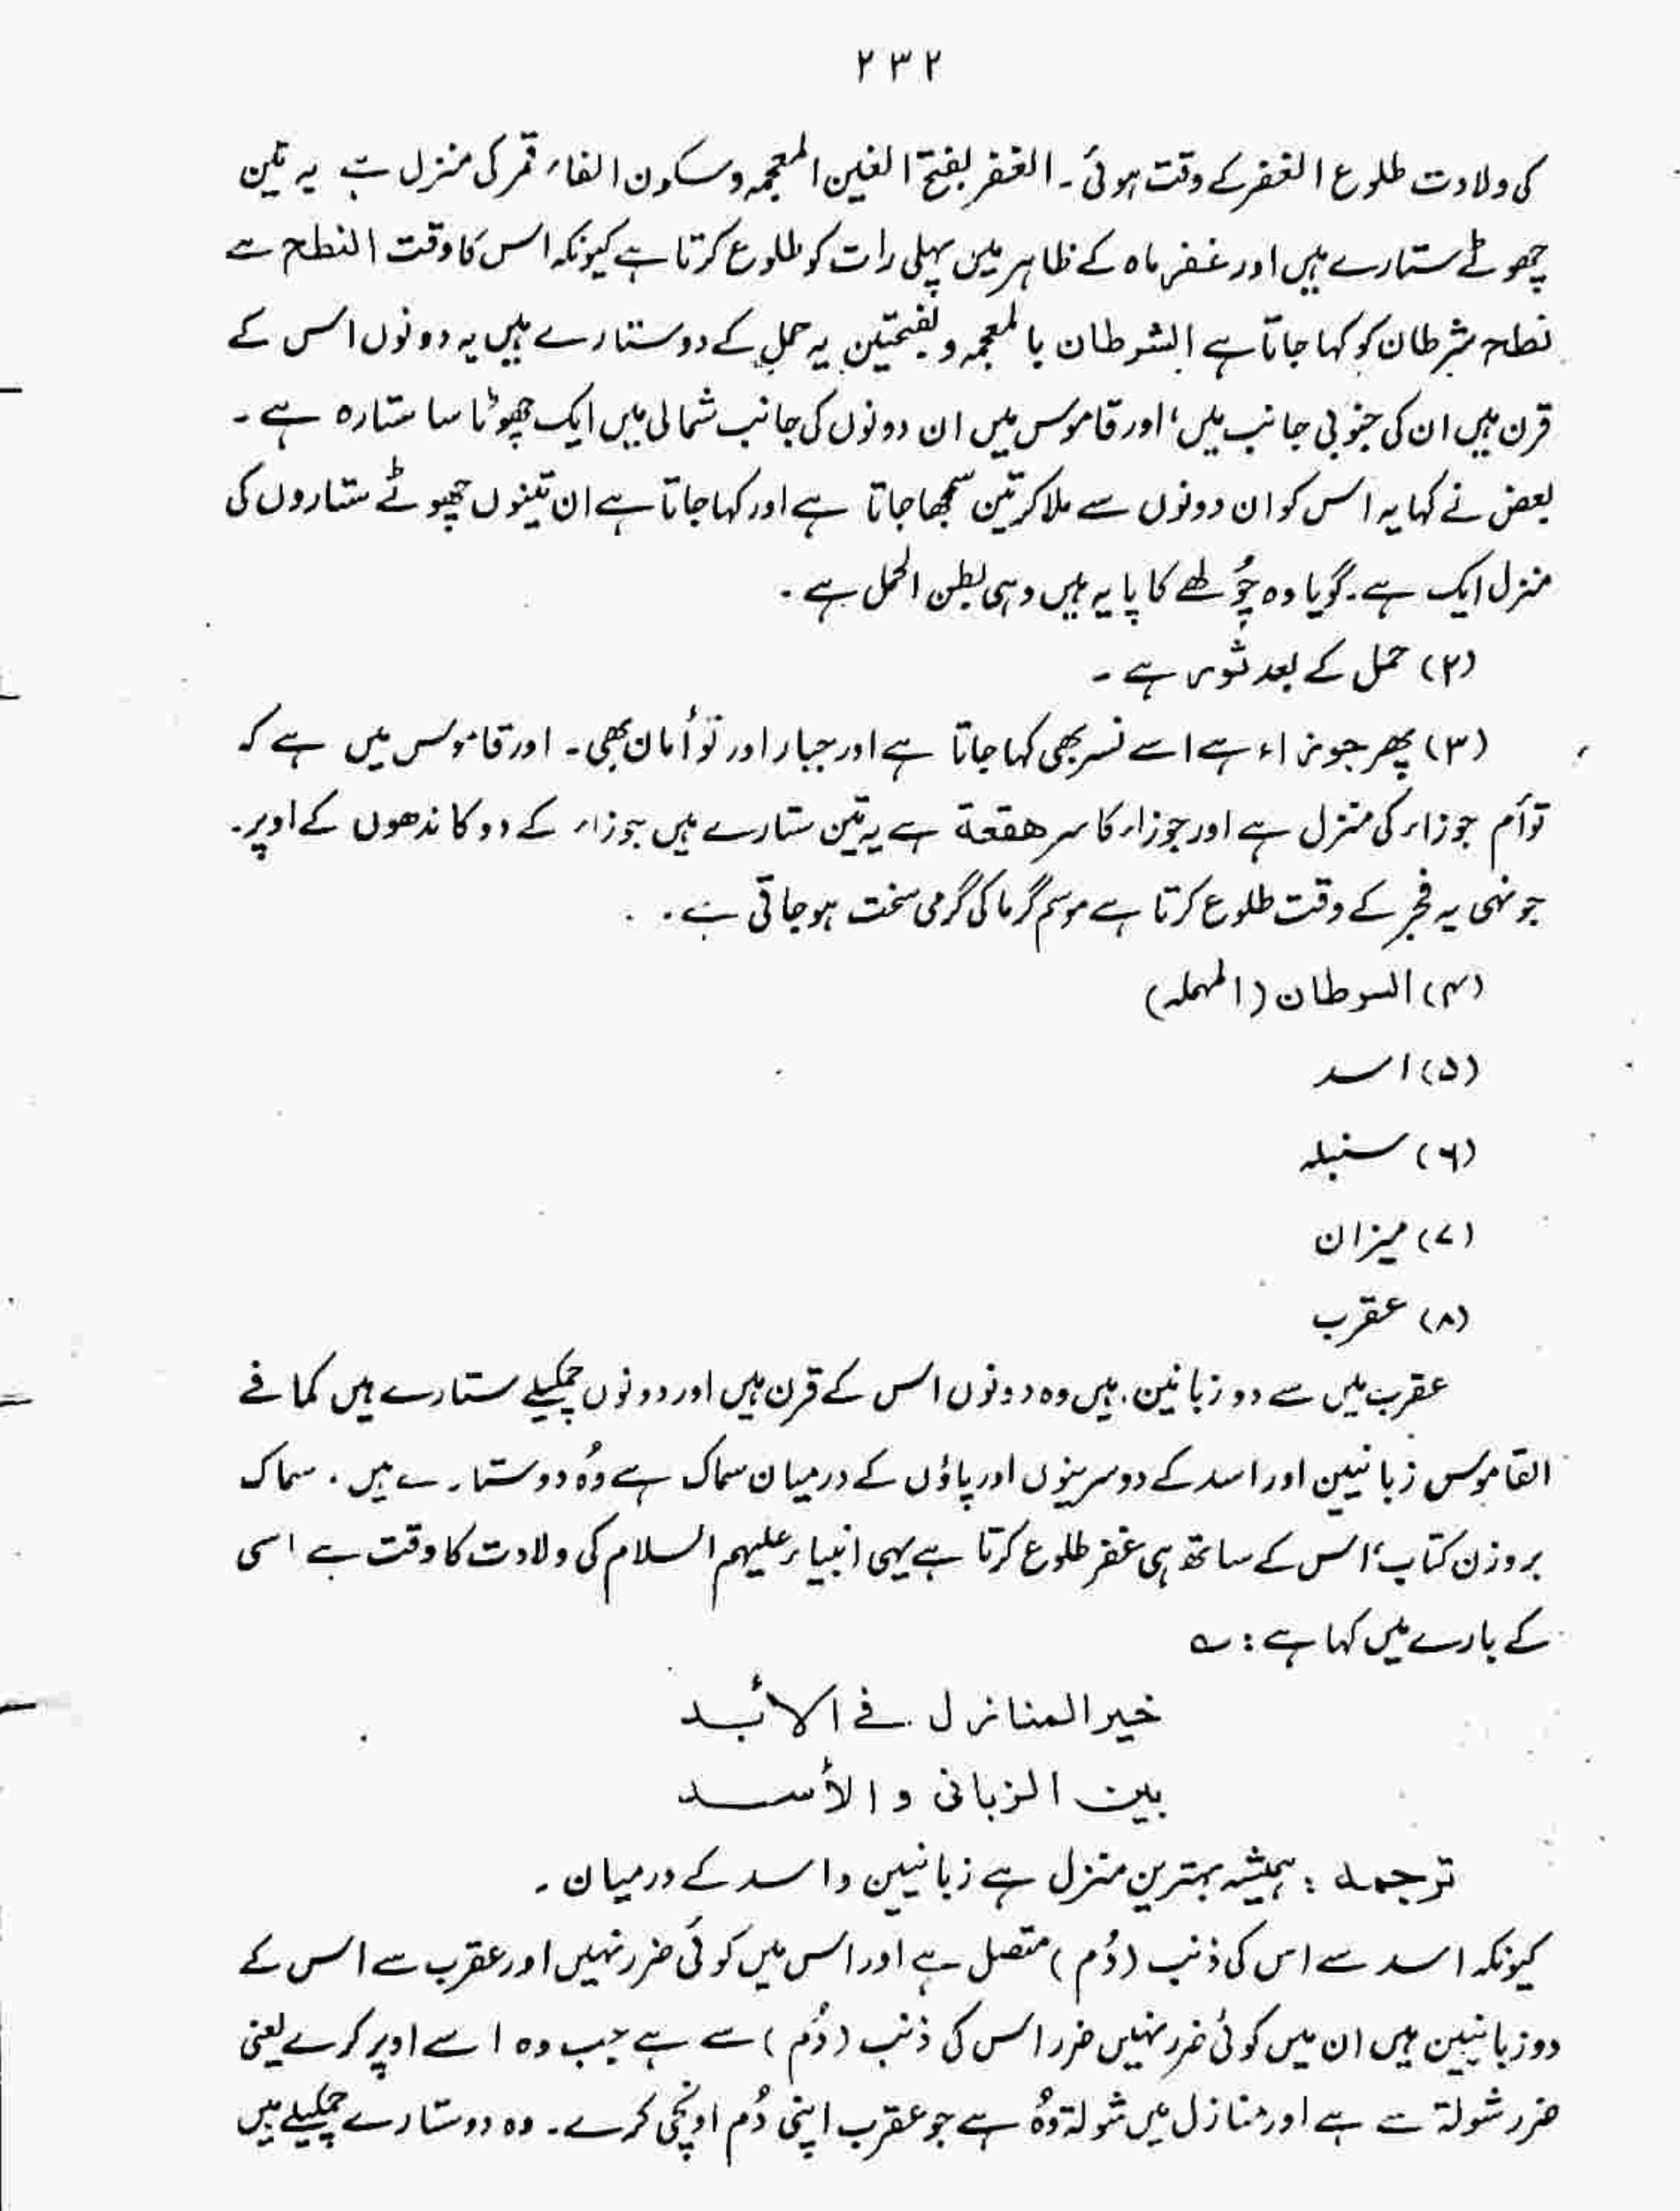 ۲۳۲
کی ولادت طلوع الغفر کے وقت ہوئی۔ الغفر بفتح الغین المعجمہ وسکون الفاء قمر کی منزل ہے یہ تین
چھوٹے ستارے ہیں اور غفر ماہ کے ظاہر میں پہلی رات کو طلوع کرتا ہے کیونکہ اس کا وقت النطح سے
نطح شرطان کو کہا جاتا ہے الشرطان بالمعجمہ و بفتحتین یہ حمل کے دو ستارے ہیں یہ دونوں اس کے
قرن ہیں ان کی جنوبی جانب میں، اور قاموس میں ان دونوں کی جانب شمالی میں ایک چھوٹا سا ستارہ ہے۔
بعض نے کہا یہ اس کو ان دونوں سے ملا کر تین سمجھا جاتا ہے اور کہا جاتا ہے ان تینوں چھوٹے ستاروں کی
منزل ایک ہے۔ گویا وہ چُولھے کا پایہ ہیں وہی بطن الحمل ہے۔
(۲) حمل کے بعد ثور ہے۔
(۳) پھر جوزاء ہے اسے نسر بھی کہا جاتا ہے اور جبار اور توأمان بھی۔ اور قاموس میں ہے کہ
توأم جوزاء کی منزل ہے اور جوزاء کا سر ھقعة ہے یہ تین ستارے ہیں جوزاء کے دو کاندھوں کے اوپر۔
جونہی یہ فجر کے وقت طلوع کرتا ہے موسم گرما کی گرمی سخت ہو جاتی ہے۔
(۴) السرطان (المہملہ)
(۵) اسد
(۶) سنبلہ
(۷) میزان
(۸) عقرب
عقرب میں سے دو زبانین ہیں وہ دونوں اس کے قرن ہیں اور دونوں چمکیلے ستارے ہیں کما فے
القاموس زبانیین اور اسد کے دو سرینوں اور پاؤں کے درمیان سماک ہے وُہ دو ستارے ہیں۔ سماک
بروزن کتاب، اس کے ساتھ ہی غفر طلوع کرتا ہے یہی انبیاء علیہم السلام کی ولادت کا وقت ہے اسی
کے بارے میں کہا ہے: ؎
خیر المنازل فے الأبد
بین الزبانی و الأسد
ترجمہ: ہمیشہ بہترین منزل ہے زبانیین و اسد کے درمیان۔
کیونکہ اسد سے اس کی ذنب (دُم) متصل ہے اور اس میں کوئی ضرر نہیں اور عقرب سے اس کے
دو زبانیین ہیں ان میں کوئی ضرر نہیں ضرر اس کی ذنب (دُم) سے ہے جب وہ اسے اوپر کرے یعنی
ضرر شولۃ سے ہے اور منازل میں شولۃ وُہ ہے جو عقرب اپنی دُم اونچی کرے۔ وہ دو ستارے چمکیلے ہیں